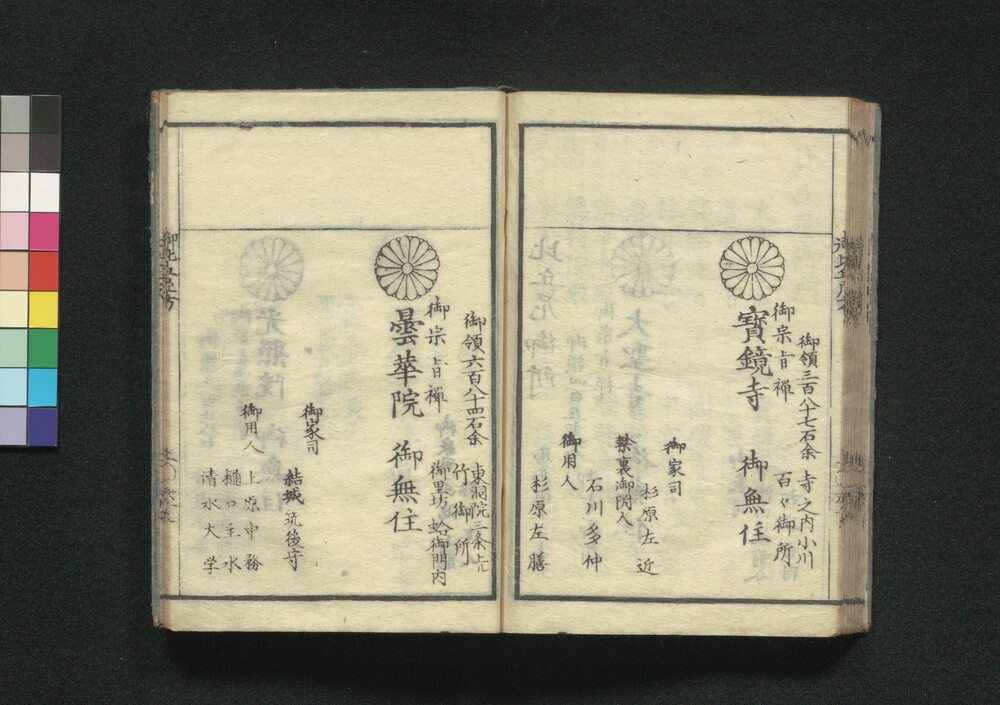 御領三百八十七石余 寺之内小川
御宗旨禅 百々御所
寳鏡寺 御無住
御家司
杉原左近
禁裏御附人
石川多仲
御用人
杉原左膳
御領六百八十四石余 東洞院三条上ル
竹御所
御宗旨禅 御里坊 蛤御門内
曇華院 御無住
御家司
結城筑後守
御用人
上原中務
樋口主水
清水大学